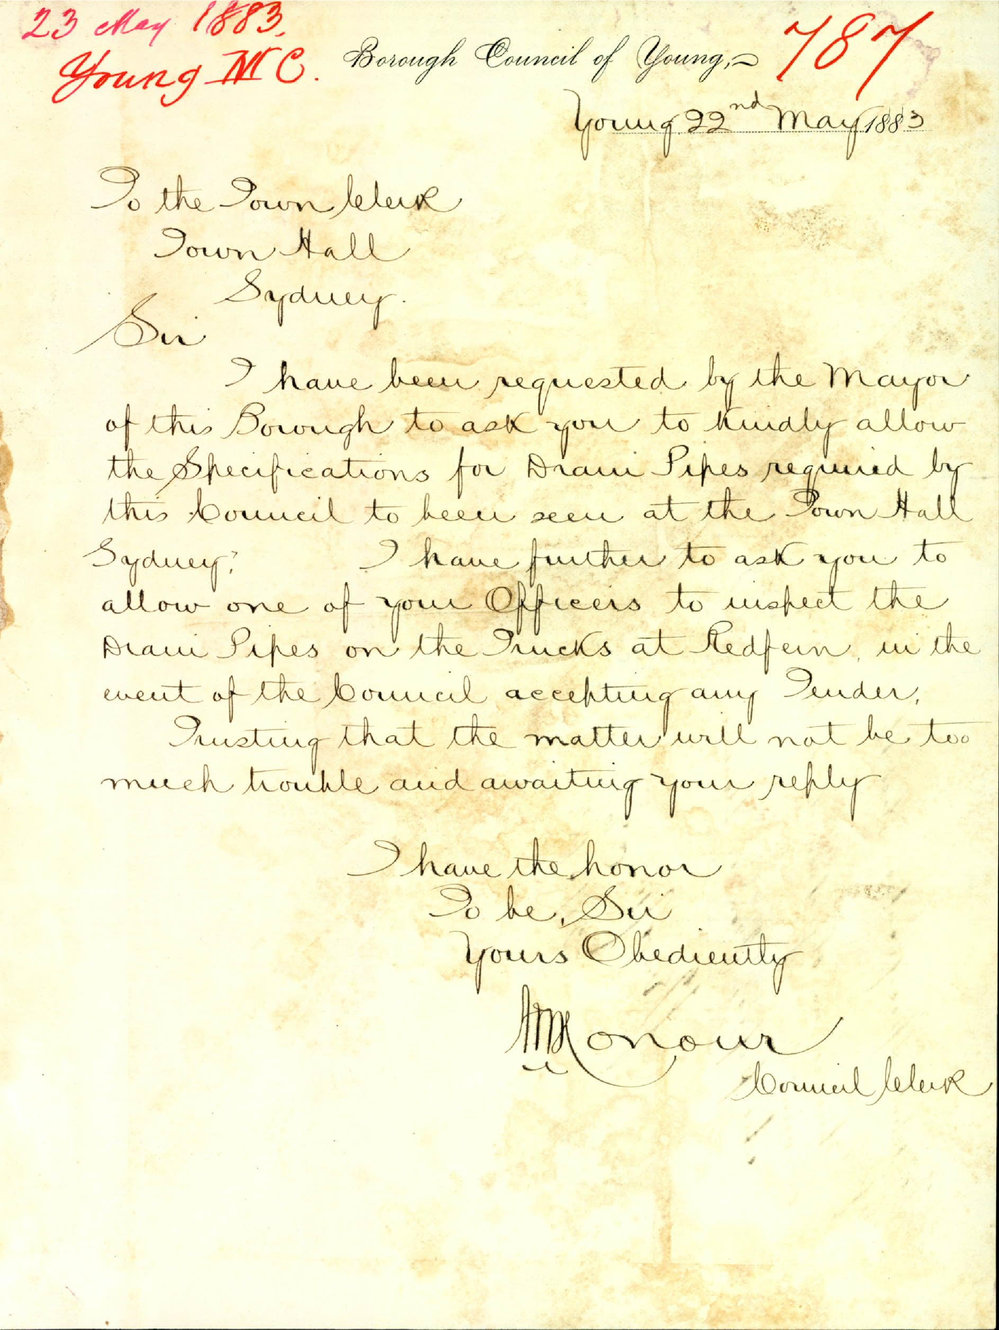 23 May 1883.
Young M C.
787
Borough Council of Young,
Young 22nd May 1883
To the Town Clerk
Town Hall
Sydney.
Sir
I have been requested by the Mayor
of this Borough to ask you to kindly allow
the Specifications for Drain Pipes required by
this Council to been seen at the Town Hall
Sydney. I have further to ask you to
allow one of your Officers to inspect the
Drain Pipes on the Trucks at Redfern, in the
event of the Council accepting any Tender.
Trusting that the matter will not be too
much trouble and awaiting your reply
I have the honor
To be, Sir
Yours Obediently
Council Clerk